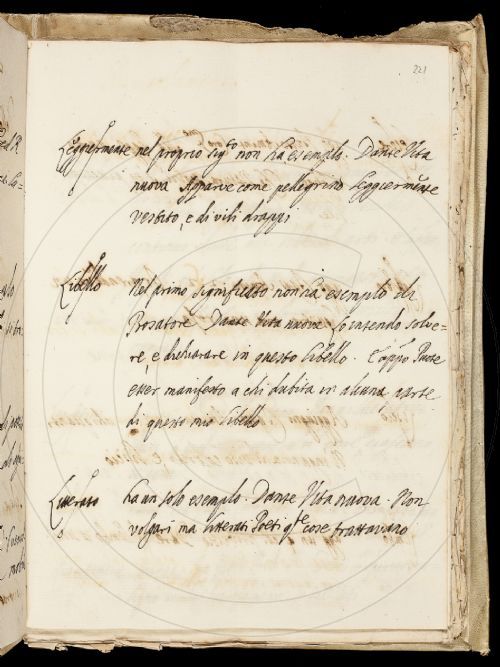 221
Leggiermente nel proprio sig.to non ha esempio. Dante Vita
nuova Apparve come pellegrino leggiermente
vestito, e di vili drappi
Libello Nel primo significato non ha esempio di
Prosatore Dante Vita nuova. Io intendo solve=
re, e dichiarare in questo libello. E appo Puote
esser manifesto a chi dubita in alcuna parte
di questo mio libello
Litterato ha un solo esempio. Dante Vita nuova. Non
volgari ma litterati Poeti q.te cose trattavano